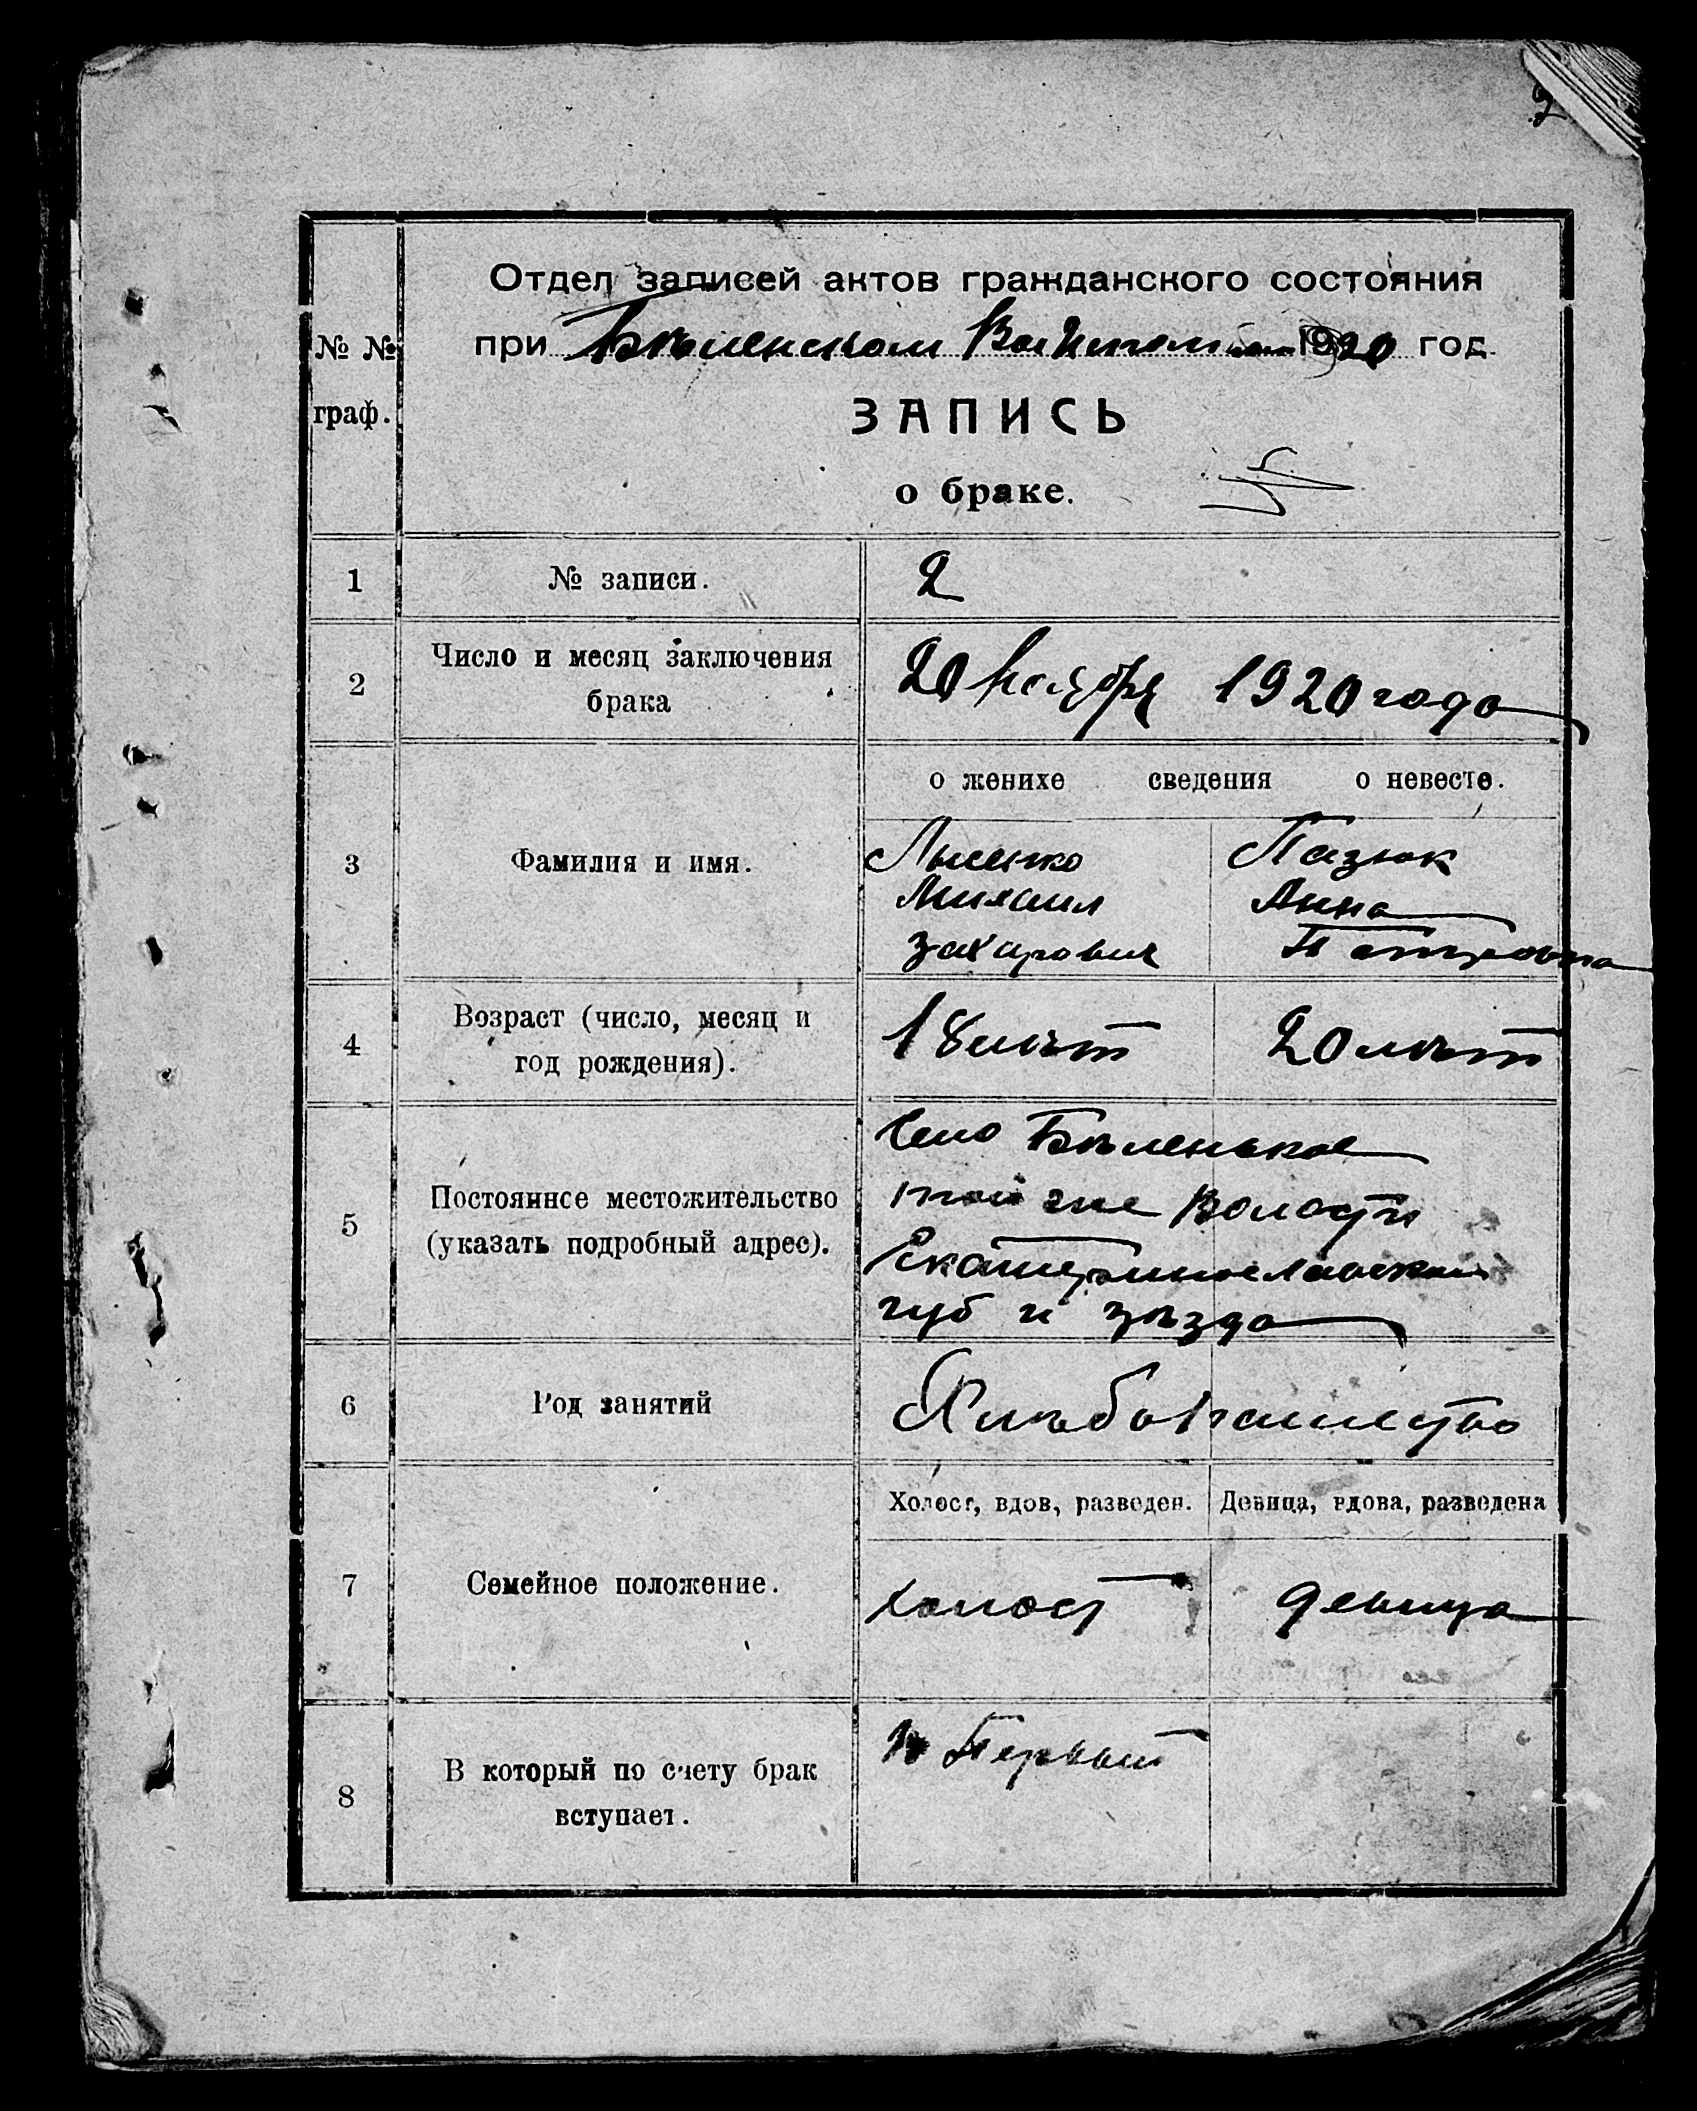 2
Отдел записей актов гражданского состояния
при Бѣленском Волисполкоме 1920 год.
№ №
граф.
ЗАПИСЬ
о браке.
1 № записи. 2
2 Число и месяц заключения
брака
20 Ноября 1920 года
о женихе сведения о невесте.
3 Фамилия и имя.
Лысенко Пазюк
Михаил Анна
Захарович Петровна
4 Возраст (число, месяц и
год рождения).
18 лѣт 20 лѣт
5 Постоянное местожительство
(указать подробный адрес).
Село Бѣленькое
той же Волости
Екатеринославской
губ и уѣзда
6 Род занятий Хлѣбопашество
Холост, вдов, разведен. Девица, вдова, разведена
7 Семейное положение. холост девица
8 В который по счету брак
вступает.
Первый